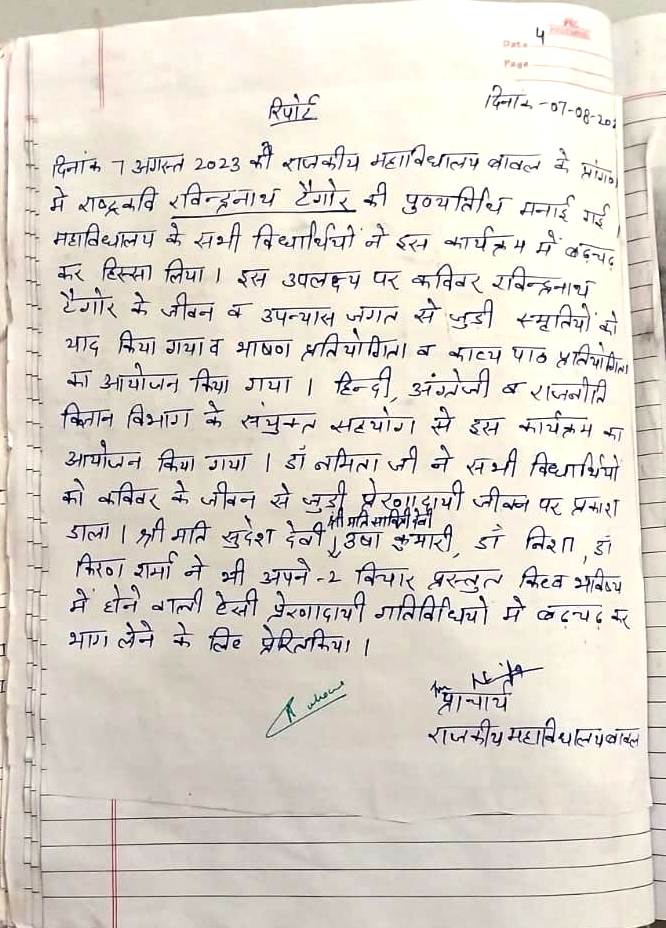 Date 4
Page
रिपोर्ट
दिनांक -07-08-202
दिनांक 7 अगस्त 2023 को राजकीय महाविधालय बावल के प्रांगण
मे राष्ट्रकवि रविन्द्रनाथ टैगोर की पुण्यतिथि मनाई गई ।
महाविधालय के सभी विधार्थियों ने इस कार्यक्रम में बढ़चढ़
कर हिस्सा लिया । इस उपलक्ष्य पर कविवर रविन्द्रनाथ
टैगोर के जीवन व उपन्यास जगत से जुडी स्मृतियों को
याद किया गया व भाषण प्रतियोगिता व काव्य पाठ प्रतियोगिता
का आयोजन किया गया । हिन्दी, अंग्रेजी व राजनीति
विज्ञान विभाग के संयुक्त सहयोग से इस कार्यक्रम का
आयोजन किया गया । डॉ नमिता जी ने सभी विधार्थियों
को कविवर के जीवन से जुडी प्रेरणादायी जीवन पर प्रकाश
श्री मति सावित्री देवी
डाला । श्री मति सुदेश देवी, उषा कुमारी, डॉ निशा, डॉ
किरण शर्मा ने भी अपने -2 विचार प्रस्तुत किए व भविष्य
में होने वाली ऐसी प्रेरणादायी गतिविधियो मे बढ़चढ़ कर
भाग लेने के लिए प्रेरित किया ।
प्राचार्य
राजकीय महाविधालय बावल